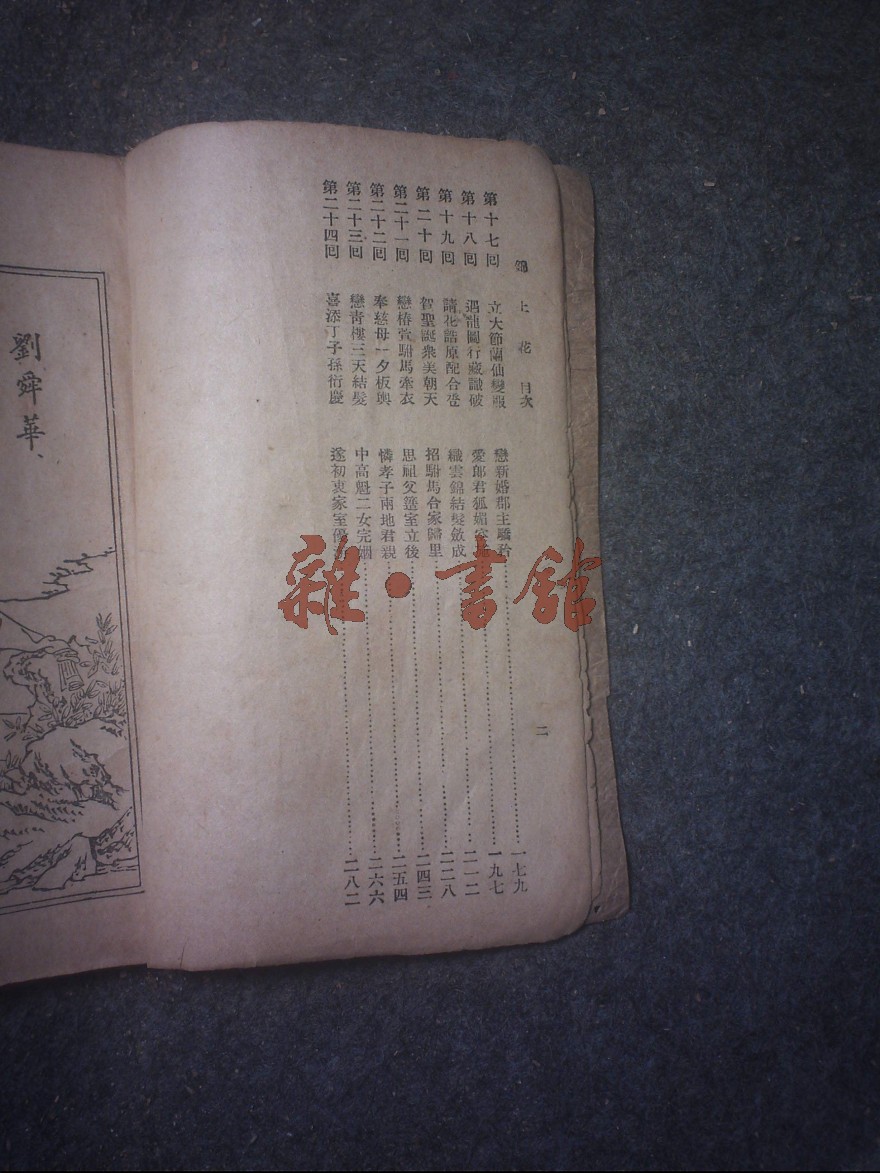 錦上花 目次 二
第十七回 立大節蘭仙變服 戀新婚郡主驕矜 一七九
第十八回 遇龍圖行藏識破 愛郎君狐媚 一九七
第十九回 請花誥原配合卺 織雲錦結髮 成 二一二
第二十回 賀聖誕衆美朝天 招駙馬合家歸里 二二八
第二十一回 戀椿萱駙馬牽衣 思祖父簉室立後 二四三
第二十二回 奉慈母一夕板輿 憐孝子兩地君親 二五四
第二十三回 戀青樓三天結髮 中高魁二女完姻 二六六
第二十四回 喜添丁子孫衍慶 遂初衷家室優 二八二
雜·書館
劉舜華